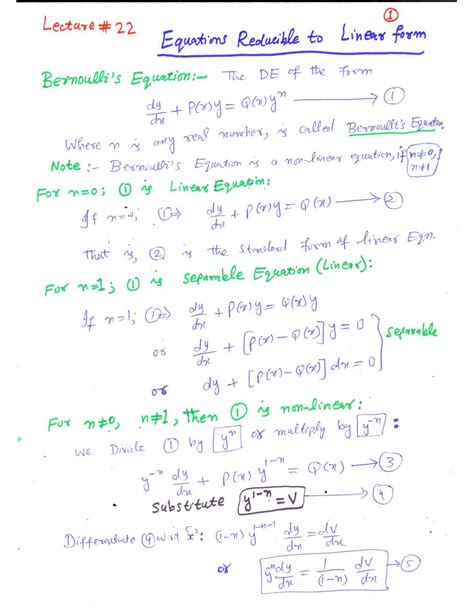 Lecture # 22
①
Equations Reducible to Linear form
Bernoulli's Equation:- The DE of the form
dy/dx + P(x)y = Q(x)yⁿ ⟶ ①
Where n is any real number, is called Bernoulli's Equation.
Note :- Bernoulli's Equation is a non-linear equation, if n≠0, n≠1
For n=0; ① is Linear Equation:
If n=0; ①⇒ dy/dx + P(x)y = Q(x) ⟶ ②
That is, ② is the standard form of linear Eqn.
For n=1; ① is separable Equation (Linear):
If n=1; ①⇒ dy/dx + P(x)y = Q(x)y
or dy/dx + [P(x) - Q(x)]y = 0
separable
or dy + [P(x) - Q(x)]dx = 0
For n≠0, n≠1, then ① is non-linear:
we Divide ① by yⁿ or multiply by y⁻ⁿ :
y⁻ⁿ dy/dx + P(x) y¹⁻ⁿ = Q(x) ⟶ ③
Substitute y¹⁻ⁿ = V ⟶ ④
Differentiate ④ w.r.t 'x': (1-n) y¹⁻ⁿ⁻¹ dy/dx = dV/dx
or y⁻ⁿ dy/dx = 1/(1-n) dV/dx ⟶ ⑤